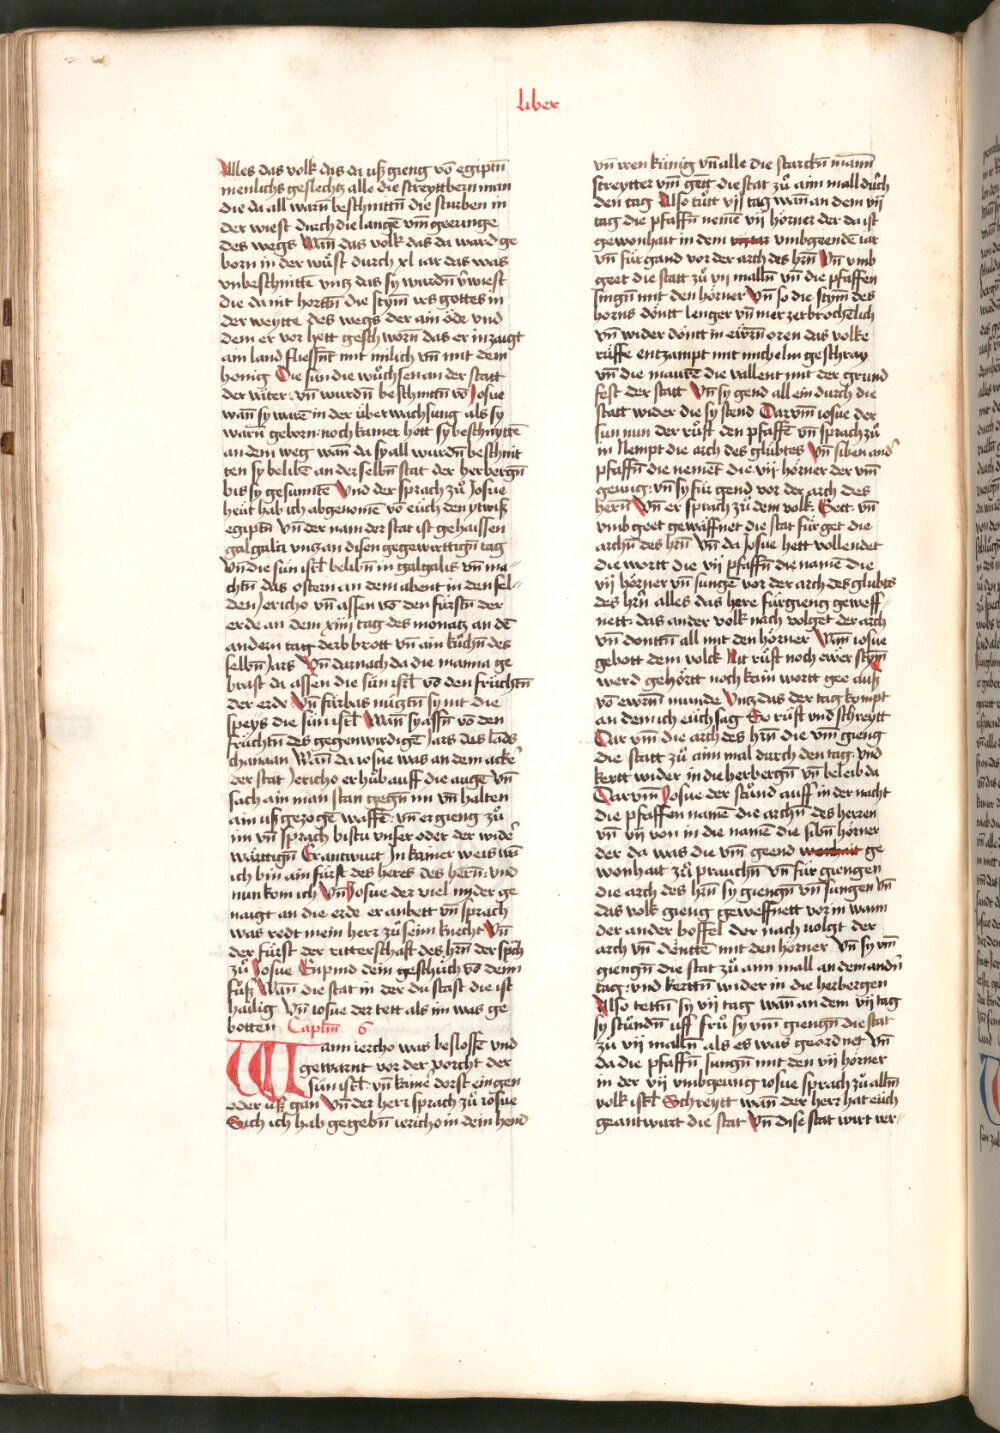 liber
Alles das volk das da uß gieng vō egiptn̄
menlichs geslechtz alle die streyttbern man
die da all warn̄ beschnittn̄ die sturben in
der wiest durch die langē vm̄geeringe
des wegs Wan̄ das volk das da ward ge
born in der wůst durch xl iar das was
vnbeschnittē vntz das sy wurdn̄ v̓wiest
die da nit hortn̄ die stym̄ vs gottes in
der weytte des wegs der ain öde vnd
dem er vor hett geschworn̄ das er in zaigt
ain land fliessnt mit milich vn̄ mit dem
honig Die sün die wůchsen an der statt
der väter · vn̄ wurdn̄ beschnittn̄ vō Josue
wān sy warē in der über wachsung als sy
warn̄ geborn · noch kainer hett sy beschnyttē
an dem weg wan̄ da sy all wurdn̄ beschnit
ten sy belibē an der selbn̄ stat der herbergn̄
bis sy gesuntē Vnd der sprach zů Josue
heüt hab ich abgenomē vō eüch den ytwiß
egiptn̄ vn̄ der nam der stat ist gehaissen
galgala vntz an disen gegewirttign̄ tag
Vn̄ die sün isrl̄ belibn̄ in galgalis vn̄ ma-
chtn̄ das ostern an dem abent in den fel-
den Jericho vn̄ assen vō den fürstn̄ der
erde an dem xiiij tag des monatz an dē
andern tag derb brott vn̄ ain kůchn̄ des
selbn̄ Jars Vn̄ darnach da die manna ge
brast da assen die sün isrl̄ vō den früchtn̄
der erde Vn̄ fürbas nütztn̄ sy nit die
speys die sün isrl̄ Wān sy assn̄ vō den
früchtn̄ des gegenwirdigē Jars des lāds
chanaan Wān da iosue was an dem acker̄
der stat Jericho er hůb auff die augē vn̄
sach ain man stan gegn̄ im vn̄ halten
ain uß gezogē waffē · vn̄ er gieng zů
im vn̄ sprach bistu vnser oder der wider̄
wärttign̄ Er antwurt In kainer weis wān
ich bin ain fürst des heres des hern̄ · vnd
nun kom ich Vn̄ Josue der viel nyder ge
naigt an die erde er anbett vn̄ sprach
was redt mein herr zů seim knecht Vn̄
der fürst der ritterschaft des hrn̄ der spch
zů Josue Enpind dein geschüch vō deim̄
fůß Wān die stat in der du stast die ist
hailig Vn̄ iosue der tett als im was ge
botten Caplm̄ 6
Wann iercho was beslossē vnd
gewarnt vor der vorcht der
sün isrl̄ · vn̄ kaine dorst ein gen
oder uß gan Vn̄ der herr sprach zů iosue
Sich ich hab gegebn̄ iericho in dein hend
vn̄ iren künig vn̄ alle die starckn̄ mann̄
streytter vm̄ geet die stat zů aim mall dürch
den tag Also tůtt vij tag wān an dem vij
tag die pfaffn̄ nemē vij hörner der da ist
gewonhait in dem vmbgeendē iar
vn̄ für gand vor der arch des hrn̄ Vn̄ vmb
geet die statt zů vij malln̄ vn̄ die pfaffen
singn̄ mit den hörner Vn̄ so die stym̄ des
horns döntt lenger vn̄ mer zerbrochelich
vn̄ wider döntt in ewrn̄ oren das volke
rüffe entzampt mit michelm geschray
vn̄ die maurē die vallent mit der grund
fest der statt Vn̄ sy gend all ein durch die
statt wider die sy stend Darvm̄ iosue der
sun nun der rüft den pfaffē vn̄ sprach zů
in Nempt die arch des glübtes Vn̄ siben ander̄
pfaffn̄ die nemēt die vij hörner der vm̄
geung · vn̄ sy für gend vor der arch des
hern̄ Vn̄ er sprach zů dem volk Geet · vn̄
vmb geet gewäffnet die stat fürget die
archn̄ des hrn̄ Vn̄ da Josue hett vollendet
die wortt die vij pfaffn̄ die namē die
vij hörner vn̄ sungē vor der arch des glübtes
des hrn̄ alles das here fürgieng geweff-
nett · das ander volk nach volget der arch
vn̄ donttn̄ all mit den hörner Wān iosue
gebott dem volck Nit rüft noch ewer stym̄
werd gehörtt noch kain wortt gee auß
vō ewrm munde Vntz das der tag kompt
an dem ich eüch sag So rüft vnd schreytt
Dar vm̄ die arch des hrn̄ die vm̄ gieng
die statt zů aim mal durch den tag · vnd
kertt wider in die herbergn̄ vn̄ beleib da
Darvm̄ Josue der stůnd auff in der nacht
die pfaffen namē die archn̄ des herren
vn̄ vij von in die namē die sibn̄ hörner
der da was die vm̄ geend wonhait ge
wonhait zů prauchn̄ vn̄ für giengen
die arch des hrn̄ sy giengn̄ vn̄ sungen Vn̄
das volk gieng geweffnett vor in wann
der ander boffel der nach uolgt der
arch vn̄ döntte mit den hörner Vn̄ sy vm̄
giengn̄ die stat zů ann mall an dem andn̄
tag · vnd kerttn̄ wider in die herbergen
Also tettn̄ sy vij tag wān an dem vij tag
sy stůndn̄ uff frů sy vm̄ giengn̄ die stat
zu vij malln̄ als es was geordnet Vn̄
da die pfaffn̄ sungn̄ mit den vij hörner
in der vij vmbgeung iosue sprach zů alln̄
volk isrl̄ Schreytt wān der herr hat eüch
geantwurt die stat Vn̄ dise stat wirt ver-